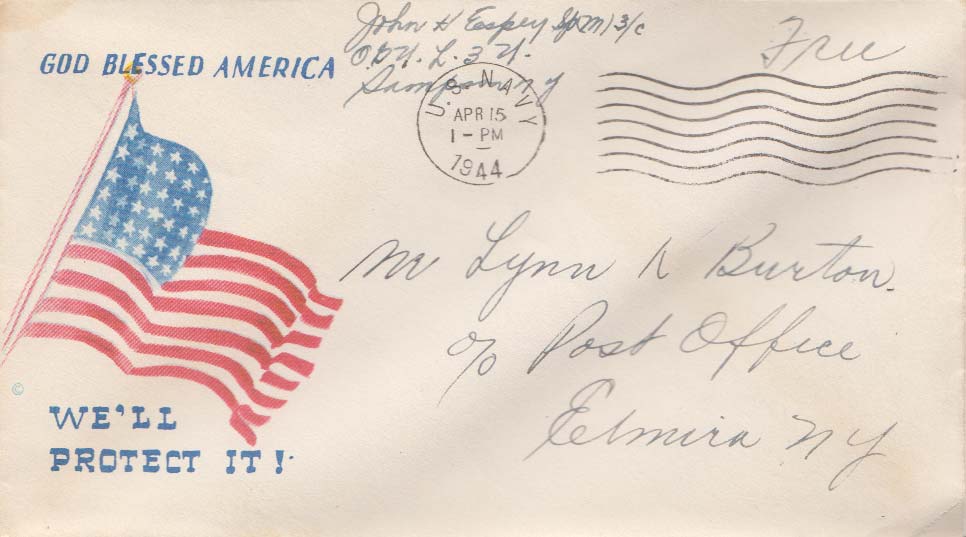 John H Espey Sp(M) 3/c
O.G.U. L. 3 U.
Sampson N Y
Free
GOD BLESSED AMERICA
U.S. NAVY
APR 15
1 - PM
1944
Mr Lynn K Burton.
c/o Post Office
Elmira N Y
©
WE'LL
PROTECT IT!